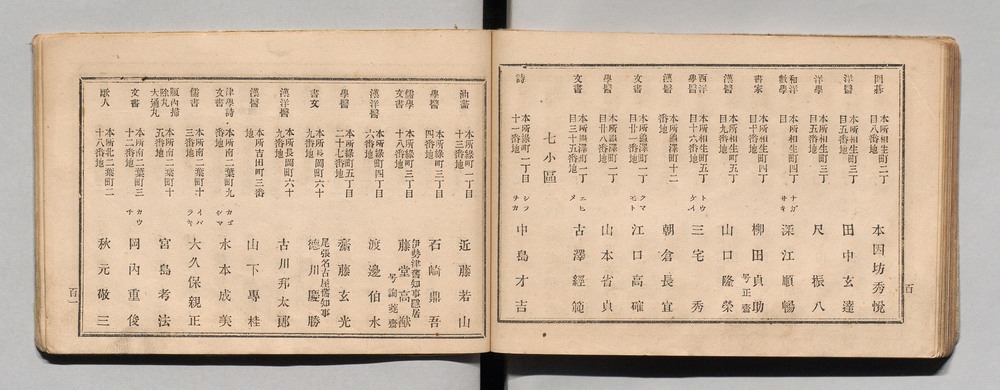 百
囲碁 本所相生町二丁目八番地 本因坊秀悅
漢醫 本所相生町三丁目五番地 田中玄達
洋學 本所相生町三丁目五番地 尺振八
和洋數學 本所相生町四丁目 ナガサキ 深江順暢
書家 本所相生町四丁目十番地 柳田貞助 号正齋
漢醫 本所相生町五丁目九番地 山口隆榮
西洋學醫 本所相生町五丁目十六番地 トウケイ 三宅秀
漢醫 本所龜澤町十二番地 朝倉長宜
文書 本所龜澤町一丁目廿一番地 クマモト 江口高確
學醫 本所龜澤町一丁目廿八番地 山本省貞
文書 本所龜澤町二丁目三十五番地 エヒメ 古澤經範
七小區
詩 本所綠町一丁目十一番地 シヅヲカ 中島才吉
油畵 本所綠町一丁目十三番地 近藤若山
學醫 本所綠町三丁目四番地 石崎鼎吾
儒學文書 本所綠町三丁目十八番地 伊勢津舊知事隱居 藤堂高猷 号詢蕘齋
漢洋醫 本所綠町四丁目六番地 渡邊伯水
學醫 本所綠町五丁目二十七番地 齋藤玄光
書文 本所長岡町六十九番地 尾張名古屋舊知事 德川慶勝
漢洋醫 本所長岡町六十九番地 古川邦太郎
漢醫 本所吉田町三番地 山下專桂
津學詩文書 本所南二葉町九番地 カゴシマ 水本成美
儒書 本所南二葉町十三番地 イバラキ 大久保親正
腹內掃除丸大通丸 本所南二葉町十五番地 宮島考法
文書 本所南二葉町三十二番地 カウチ 岡內重俊
歌人 本所北二葉町二十八番地 秋元敬三
百一